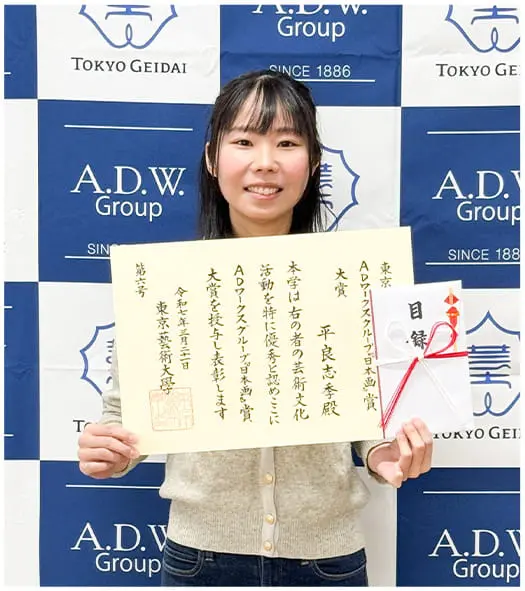 A.D.W.
Group
TOKYO GEIDAI
SINCE 1886
TOKYO GEIDAI
A.D.W.
Group
SINCE
A.D.W.
Group
SINCE 1886
東京
ADワークスグループ“日本画”賞
大賞
平良志季殿
本学は右の者の芸術文化
活動を特に優秀と認めここに
ADワークスグループ“日本画”賞
大賞を授与し表彰します
令和七年三月二十一日
東京藝術大學
第六号
目録
TOKYO GEIDAI
A.D.W.
Group
A.D.W.
Group